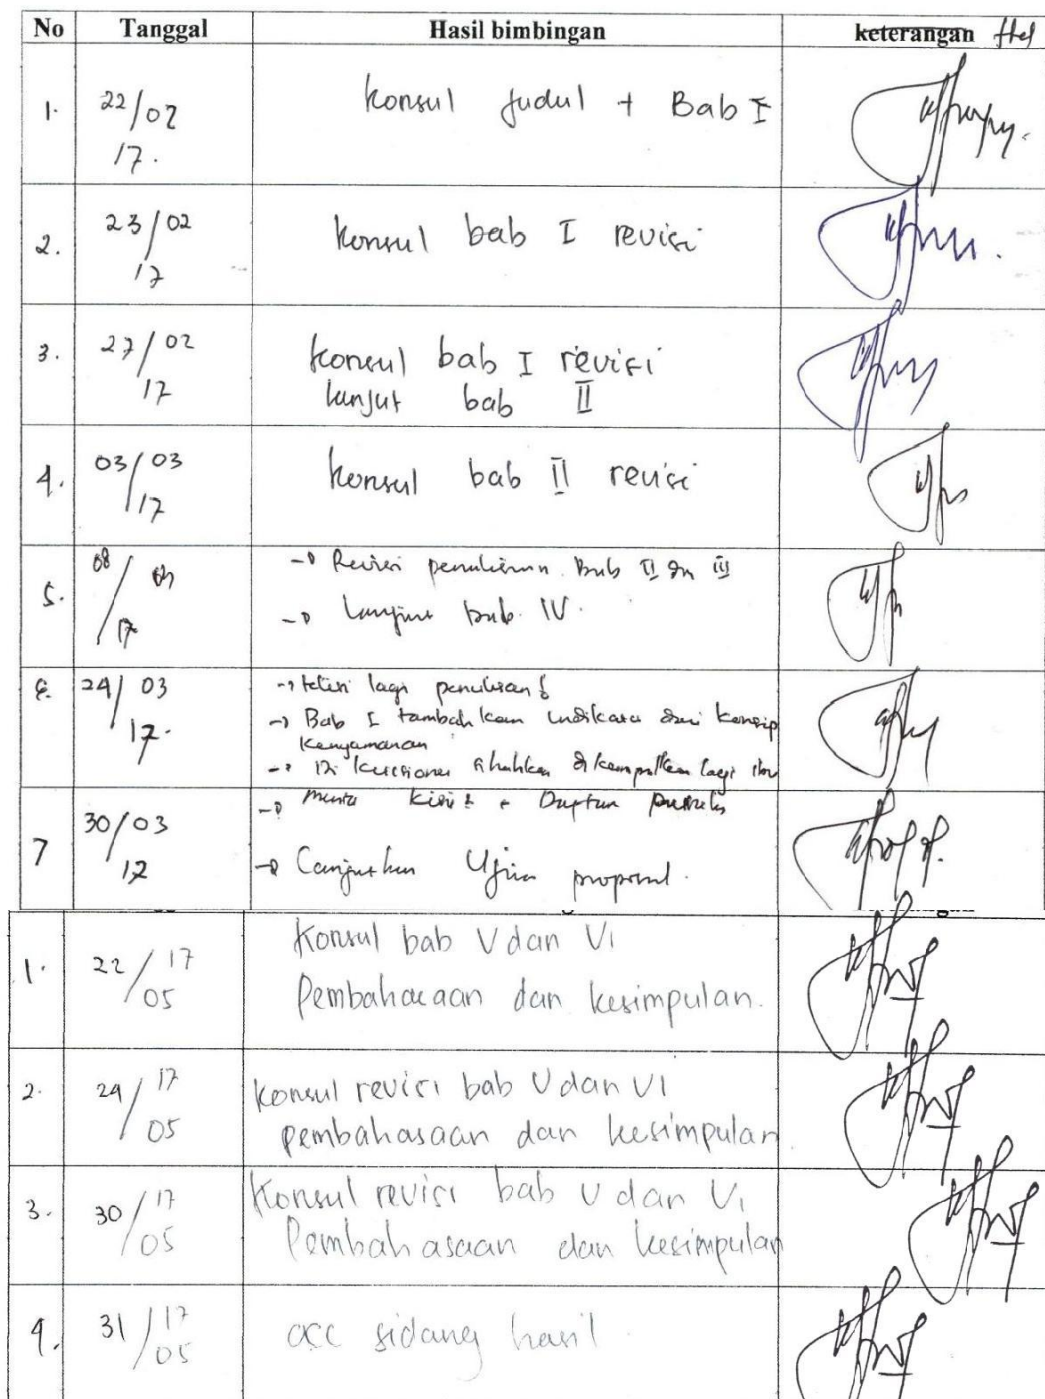 No Tanggal Hasil bimbingan keterangan
1. 22/02 17. Konsul Judul + Bab I
2. 23/02 17 Konsul bab I revisi
3. 27/02 17 Konsul bab I revisi
lanjut bab II
4. 03/03 17 Konsul bab II revisi
5. 08/03 17 → Revisi penulisan Bab II dan III
→ Lanjut bab IV.
6. 24/03 17. → teliti lagi penulisan
→ Bab I tambahkan indikator dari konsep
kenyamanan
→ Di kuesioner lagi
7 30/03 17 → + Daftar pustaka
→ Lanjutkan Ujian proposal.
1. 22/17 05 Konsul bab V dan VI
Pembahasaan dan kesimpulan.
2. 24/17 05 Konsul revisi bab V dan VI
pembahasaan dan kesimpulan
3. 30/17 05 Konsul revisi bab V dan VI
Pembahasaan dan kesimpulan
4. 31/17 05 acc sidang hasil